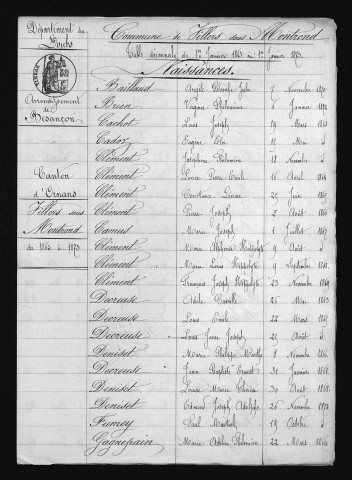 Département du
Doubs
Arrondissement
de
Besançon
Canton
d'Ornans
Villers sous
Montrond
de 1863 à 1873
Commune de Villers sous Montrond
Table décennale du 1er Janvier 1863 au 1er Janvier 1873.
Naissances.
Baillaud Angèle 7 Novembre 1870
Brien Virginie Philomène 6 Janvier 1872
Cachot Louis Joseph 19 Mars 1863
Cadoz Eugène 12 Mai
Clément Joséphine Philomène 18 Novembre
Clément Louis Pierre Emile 16 Avril 1864
Clément Constance Louise 25 Juin 1865
Clément Pierre Joseph 2 Août
Camus Marie Joseph 5 Juillet 1867
Clément Marie Hippolyte 9 Août
Clément Marie Louis Hippolyte 9 Septembre 1868
Clément François Joseph Hippolyte 23 Novembre 1869
Decreuse Adèle Camille 25 Mai 1863
Decreuse Louis Emile 22 Mars 1865
Decreuse Louis Jean Joseph 21 Août
Deniset Marie Philippe 8 Novembre 1866
Decreuse Jean Baptiste Ernest 31 Janvier 1868
Deniset Louise Marie 30 Août 1868
Deniset Edmond Joseph Adolphe 26 Novembre 1872
Fumey Paul 19 Octobre
Gagnepain Marie Adeline Philomène 22 Mars 1866